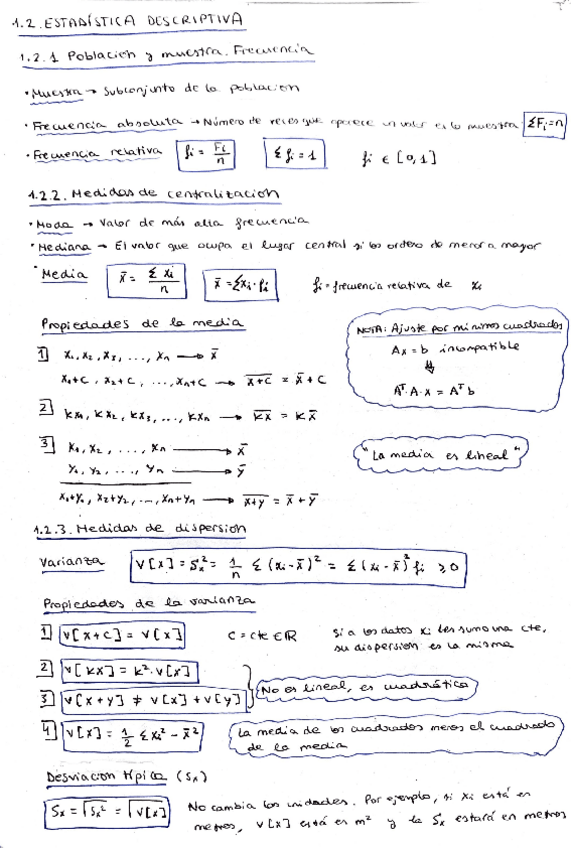 1.2. ESTADÍSTICA DESCRIPTIVA
1.2.1 Población y muestra. Frecuencia
• Muestra → Subconjunto de la población
• Frecuencia absoluta → Número de veces que aparece un valor en la muestra ΣFi=n
• Frecuencia relativa fi = Fi/n Σfi=1 fi ∈ [0,1]
1.2.2. Medidas de centralización
• Moda → Valor de más alta frecuencia
• Mediana → El valor que ocupa el lugar central si los ordeno de menor a mayor
• Media x̄ = Σxi/n x̄ = Σxi·fi fi = frecuencia relativa de xi
Propiedades de la media
1] x1, x2, x3, ..., xn → x̄
x1+c, x2+c, ..., xn+c → x+c̅ = x̄+c
2] kx1, kx2, kx3, ..., kxn → kx̅ = kx̄
3] x1, x2, ..., xn → x̄
y1, y2, ..., yn → ȳ
x1+y1, x2+y2, ..., xn+yn → x+y̅ = x̄+ȳ
NOTA: Ajuste por mínimos cuadrados
Ax = b incompatible
⇓
Aᵀ·A·x = Aᵀb
"La media es lineal"
1.2.3. Medidas de dispersión
Varianza V[x] = Sx² = 1/n Σ(xi-x̄)² = Σ(xi-x̄)² fi ≥ 0
Propiedades de la varianza
1] V[x+c] = V[x] c = cte ∈ ℝ Si a los datos xi les sumo una cte,
su dispersión es la misma
2] V[kx] = k²·V[x]
3] V[x+y] ≠ V[x]+V[y]
No es lineal, es cuadrática
4] V[x] = 1/2 Σxi² - x̄²
La media de los cuadrados menos el cuadrado
de la media
Desviación típica (Sx)
Sx = √Sx² = √V[x] No cambia las unidades. Por ejemplo, si xi está en
metros, V[x] está en m² y la Sx estará en metros